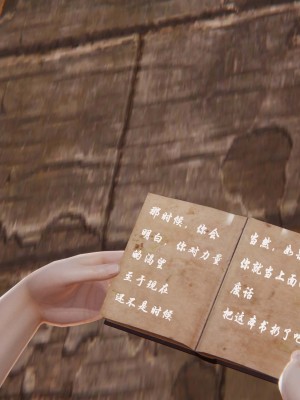 那时候，你会
明白，你对力量
的渴望
至于现在
还不是时候
当然，如
你就当上面
废话
把这本书扔了吧